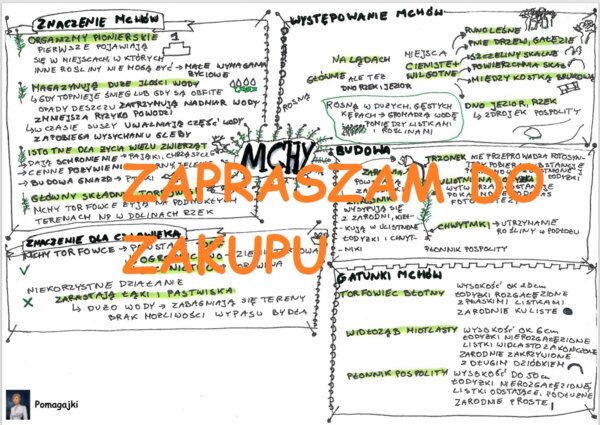 ZNACZENIE MCHÓW
ORGANIZMY PIONIERSKIE
PIERWSZE POJAWIAJĄ
SIĘ W MIEJSCACH, W KTÓRYCH
INNE ROŚLINY NIE MOGĄ BYĆ → MAŁE WYMAGANIA
BYCIOWE
1
MAGAZYNUJĄ DUŻE ILOŚCI WODY
↳ GDY TOPNIEJE ŚNIEG LUB GDY SĄ OBFITE
OPADY DESZCZU ZATRZYMUJĄ NADMIAR WODY
ZMNIEJSZA RYZYKO POWODZI
↳ W CZASIE SUSZY UWALNIAJĄ CZĘŚĆ WODY
ZAPOBIEGA WYSYCHANIU GLEBY
ISTOTNE DLA ŻYCIA WIELU ZWIERZĄT
→ DAJĄ SCHRONIENIE → PAJĄKI, CHRZĄSZCZE
→ CENNE POŻYWIENIE
→ BUDOWA GNIAZD → PTAKI
GŁÓWNY SKŁADNIK TORFOWISK
MCHY TORFOWCE ŻYJĄ NA PODMOKŁYCH
TERENACH NP W DOLINACH RZEK
ZNACZENIE DLA CZŁOWIEKA
MCHY TORFOWCE →
OGRODNICTWO
NIEKORZYSTNE DZIAŁANIE
ZARASTAJĄ ŁĄKI I PASTWISKA
↳ DUŻO WODY → ZABAGNIAJĄ SIĘ TERENY
BRAK MOŻLIWOŚCI WYPASU BYDŁA
MCHY
WYSTĘPOWANIE MCHÓW
ROSNĄ
NA LĄDACH
GŁÓWNIE ALE TEŻ
DNO RZEK I JEZIOR
MIEJSCA
CIENISTE I
WILGOTNE
RUNO LEŚNE
PNIE DRZEW, GAŁĘZIE
SZCZELINY SKALNE
POWIERZCHNIA SKAŁ
MIĘDZY KOSTKĄ BRUKOWĄ
DNO JEZIOR, RZEK
↳ ZDROJEK POSPOLITY
ROSNĄ W DUŻYCH, GĘSTYCH
KĘPACH → GROMADZĄ WODĘ
POMIĘDZY LISTKAMI
I ROŚLINAMI
BUDOWA
WYSYPUJĄ SIĘ
Z ZARODNI, KIEŁ-
KUJĄ W ULISTNIONE
ŁODYŻKI I CHWYT-
NIKI
TRZONEK
CHWYTNIKI → UTRZYMANIE
ROŚLINY W PODŁOŻU
PŁONNIK POSPOLITY
GATUNKI MCHÓW
TORFOWIEC BŁOTNY
WYSOKOŚĆ OK 20cm
ŁODYŻKI ROZGAŁĘZIONE
Z PŁASKIMI LISTKAMI
ZARODNIE KULISTE
WIDŁOZĄB MIOTLASTY
WYSOKOŚĆ OK 6cm
ŁODYŻKI NIEROZGAŁĘZIONE
LISTKI WIDLASTO ZAKOŃCZONE
ZARODNIE ZAKRZYWIONE
Z DŁUGIM DZIÓBKIEM
PŁONNIK POSPOLITY
WYSOKOŚĆ DO 50cm
ŁODYŻKI NIEROZGAŁĘZIONE,
LISTKI ODSTAJĄCE, PODŁUŻNE
ZARODNIE PROSTE
ZAPRASZAM DO
ZAKUPU
Pomagajki